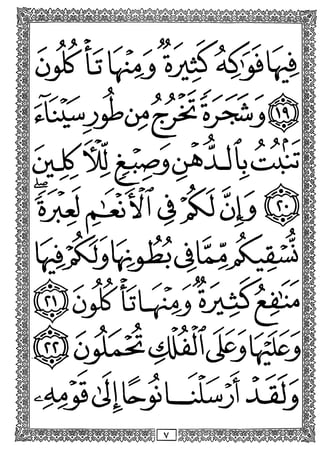 فِيهَا فَوَٰكِهُ كَثِيرَةٌ وَمِنْهَا تَأْكُلُونَ
١٩ وَشَجَرَةً تَخْرُجُ مِن طُورِ سَيْنَآءَ
تَنۢبُتُ بِٱلدُّهْنِ وَصِبْغٍ لِّلْآكِلِينَ
٢٠ وَإِنَّ لَكُمْ فِي ٱلْأَنْعَٰمِ لَعِبْرَةً ۖ
نُّسْقِيكُم مِّمَّا فِي بُطُونِهَا وَلَكُمْ فِيهَا
مَنَٰفِعُ كَثِيرَةٌ وَمِنْهَا تَأْكُلُونَ ٢١
وَعَلَيْهَا وَعَلَى ٱلْفُلْكِ تُحْمَلُونَ ٢٢
وَلَقَدْ أَرْسَلْنَا نُوحًا إِلَىٰ قَوْمِهِۦ
٧